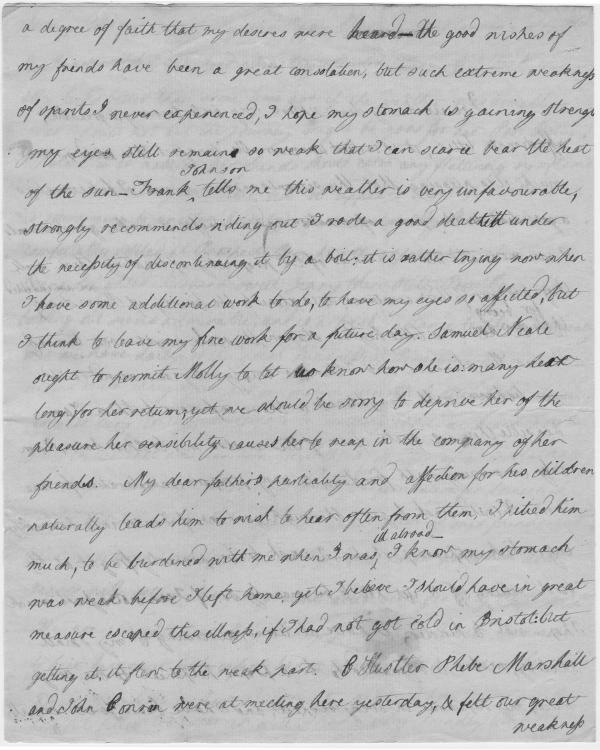 a degree of faith that my desires were heard — the good wishes of
my friends have been a great consolation, but such extreme weakness
of spirits I never experienced, I hope my stomach is gaining strength
my eyes still remain so weak that I can scarce bear the heat
Johnson
of the sun — Frank ‸ tells me this weather is very unfavourable,
strongly recommends riding out I rode a good deal till under
the necessity of discontinuing it by a boil: it is rather trying now when
I have some additional work to do, to have my eyes so affected, but
I think to leave my fine work for a future day. Samuel Neale
ought to permit Molly to let us know how she is: many here
long for her return, yet we should be sorry to deprive her of the
pleasure her sensibility causes her to reap in the company of her
friends. My dear father's partiality and affection for his children
naturally leads him to wish to hear often from them, I pitied him
ill abroad —
much, to be burdened with me when I was ‸ I know my stomach
was weak before I left home, yet I believe I should have in great
measure escaped this illness, if I had not got cold in Bristol: but
getting it, it flew to the weak part. C Hustler Phebe Marshall
and John Conran were at meeting here yesterday, & felt our great
weakness